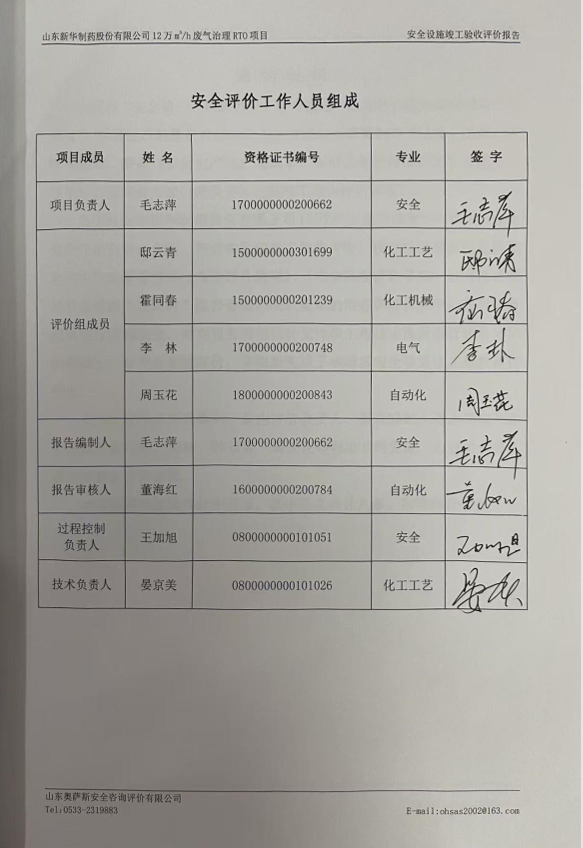 山东新华制药股份有限公司12万m³/h废气治理RTO项目 安全设施竣工验收评价报告
安全评价工作人员组成
项目成员 姓 名 资格证书编号 专业 签 字
项目负责人 毛志萍 1700000000200662 安全 毛志萍
评价组成员
邸云青 1500000000301699 化工工艺
霍同春 1500000000201239 化工机械
李 林 1700000000200748 电气
周玉花 1800000000200843 自动化 周玉花
报告编制人 毛志萍 1700000000200662 安全 毛志萍
报告审核人 董海红 1600000000200784 自动化
过程控制
负责人 王加旭 0800000000101051 安全
技术负责人 晏京美 0800000000101026 化工工艺
山东奥萨斯安全咨询评价有限公司
Tel:0533-2319883 E-mail:ohsas2002@163.com